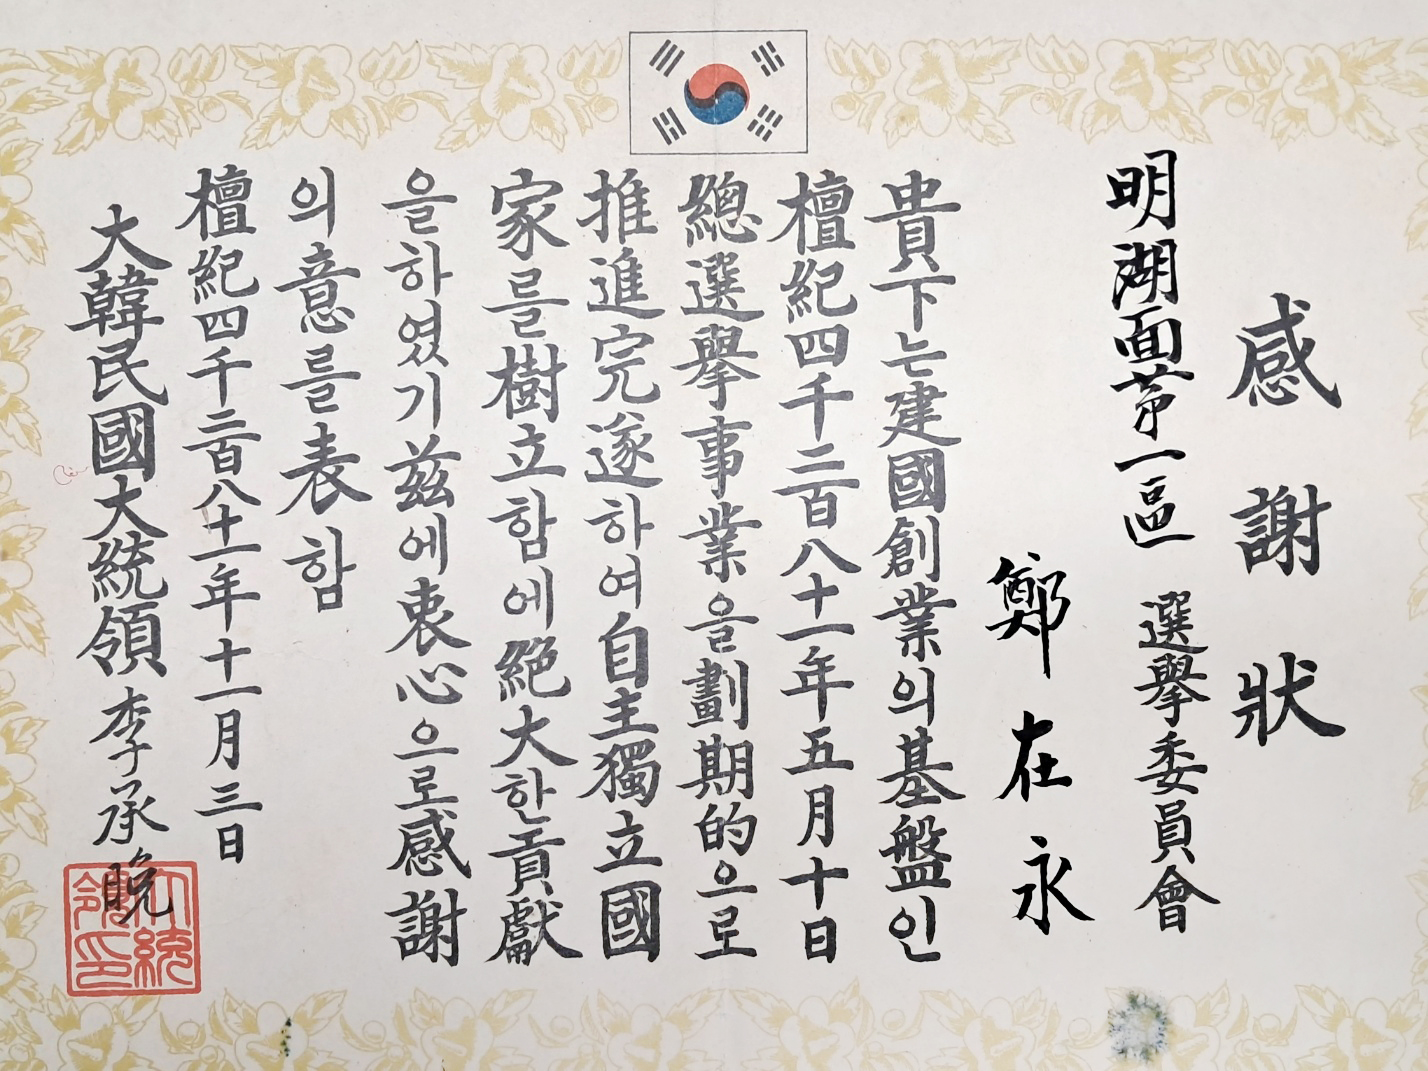 感謝狀
明湖面第一區 選擧委員會
鄭在永
貴下는建國創業의基盤인
檀紀四千二百八十一年五月十日
總選擧事業을劃期的으로
推進完遂하여自主獨立國
家를樹立함에絕大한貢獻
을하였기玆에衷心으로感謝
의意를表함
檀紀四千二百八十一年十一月三日
大韓民國大統領李承晩
大統
領印